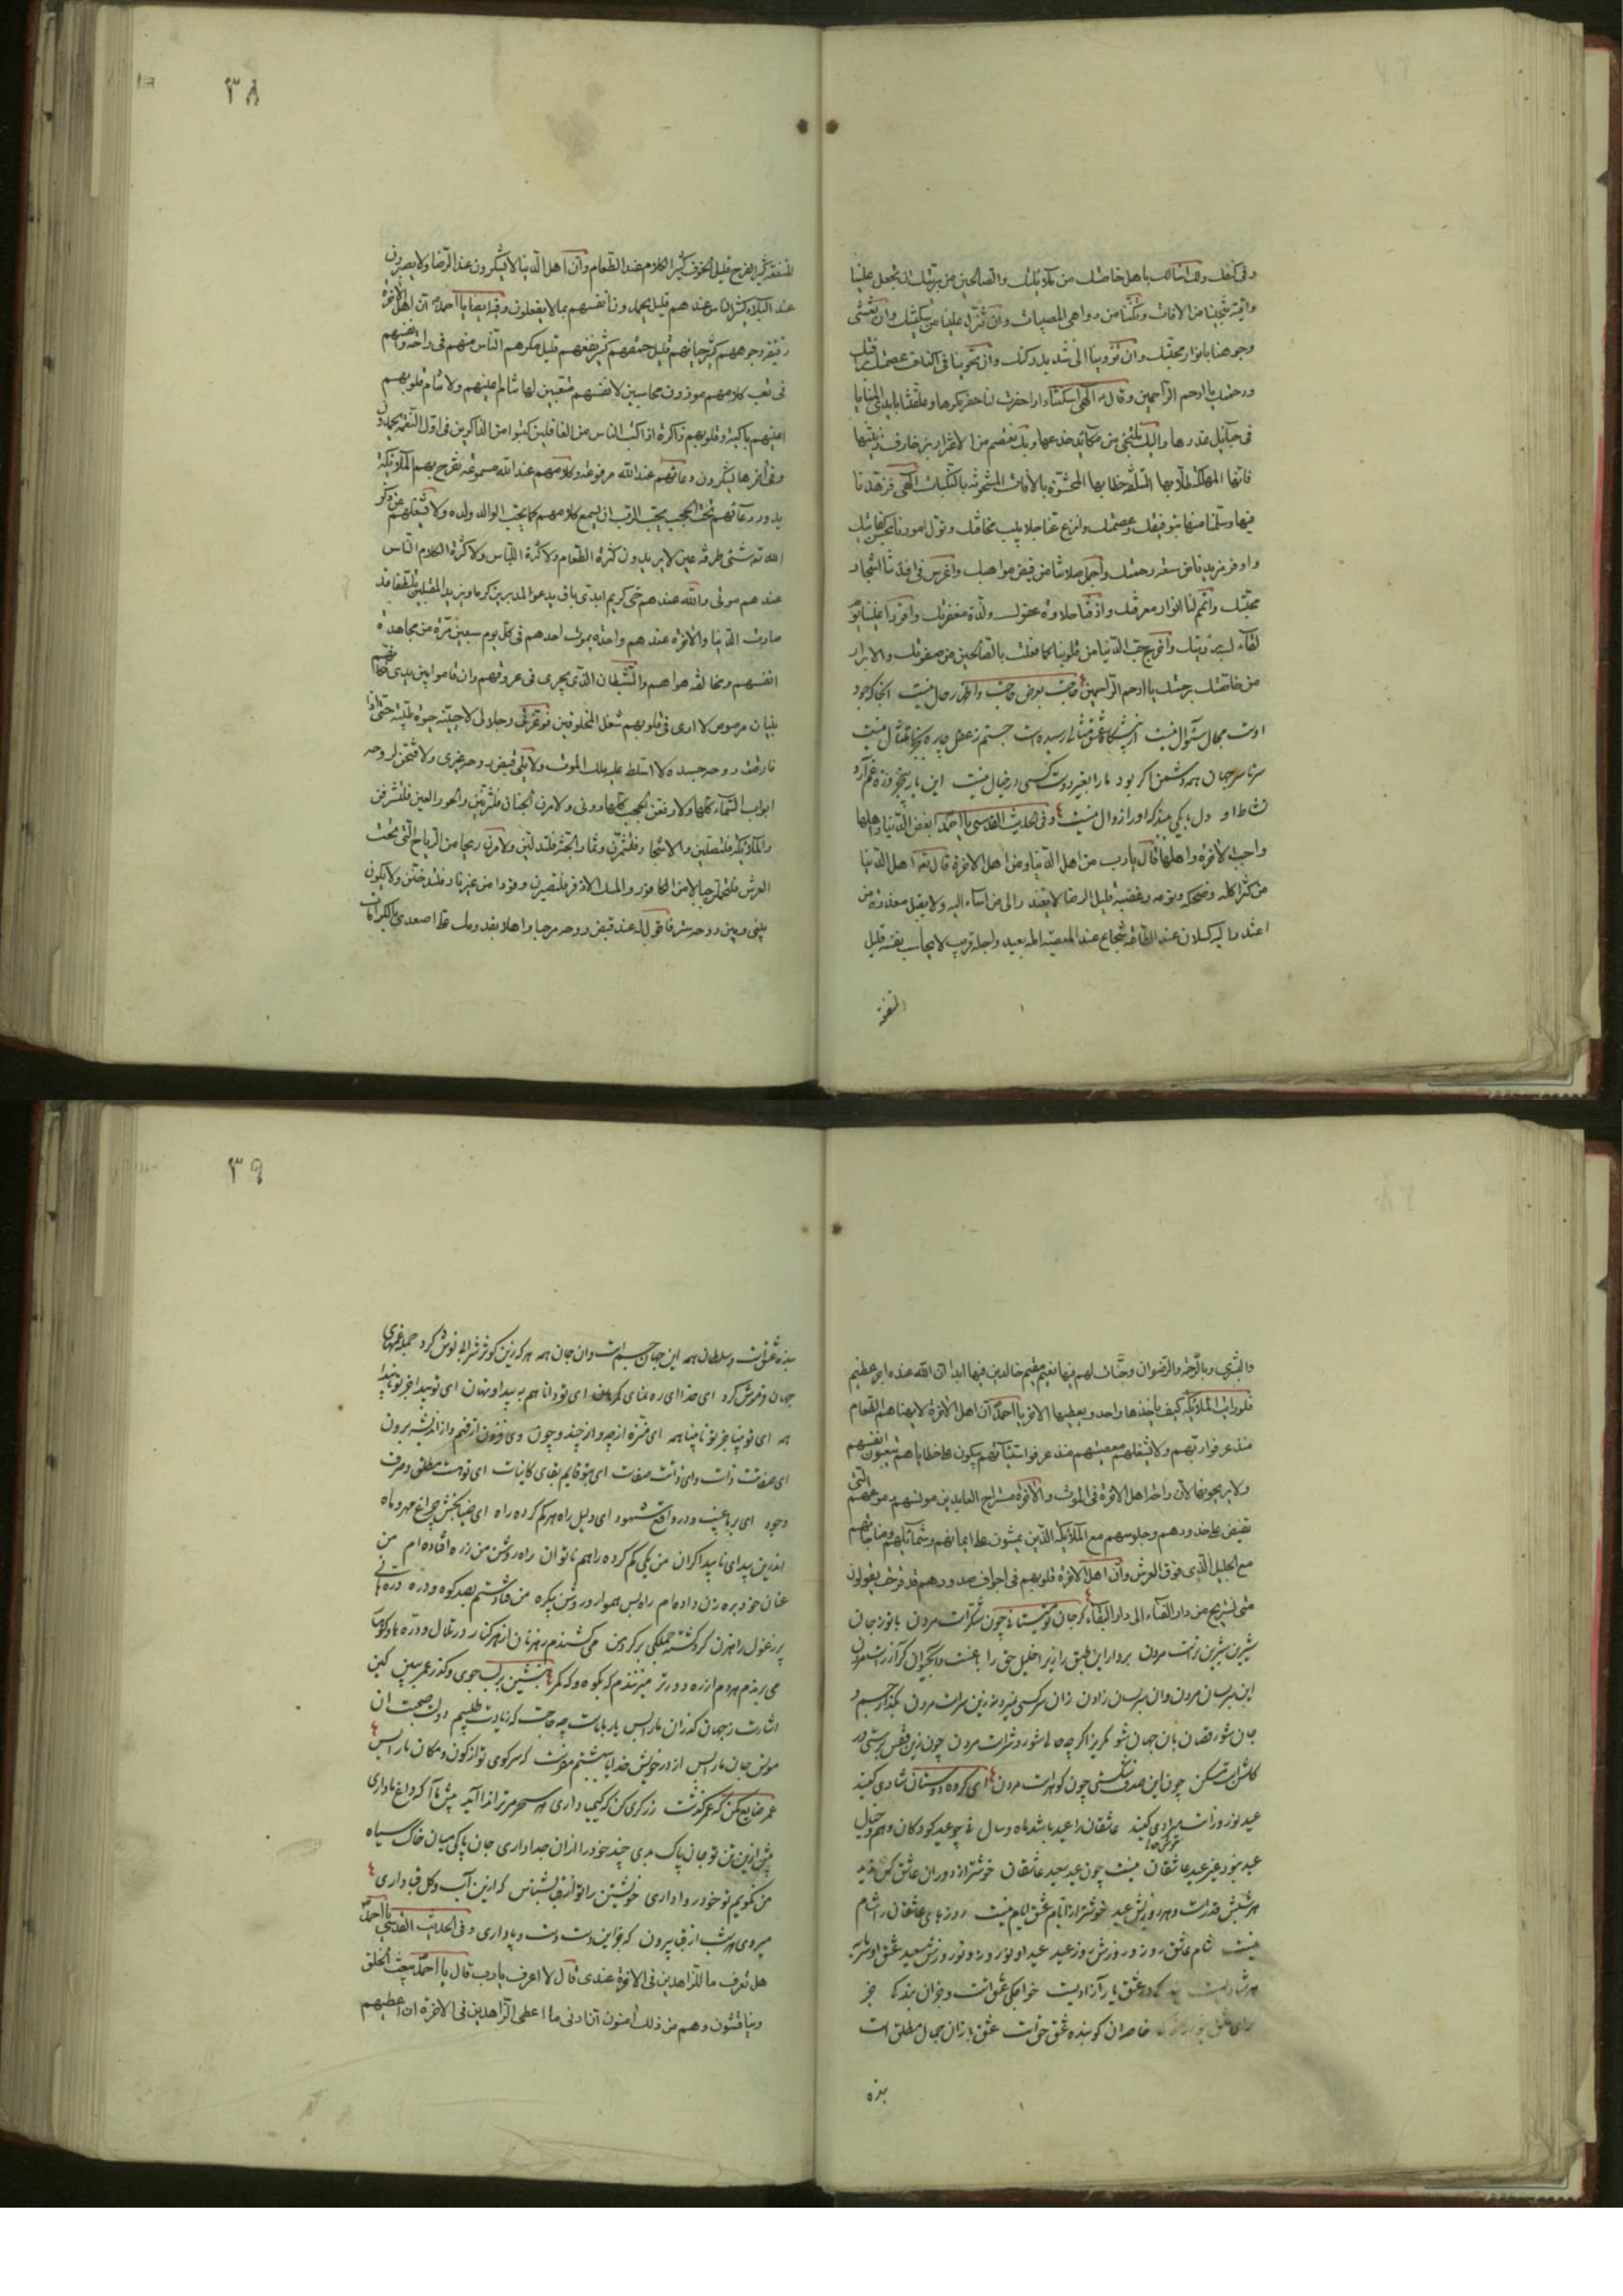 وفی کنفك ولك اسالك باهل خاصتك من ملائكتك والصالحین من بریتك ان تجعل علینا
واقیة تنجینا من الافات وتكننا من دواهی المصیبات وان تنزل علینا من سكینتك وان تغشی
وجوهنا بانوار محبتك وان تؤوینا الی شدید ركنك وان تحوینا فی اكناف عصمتك برأفتك
ورحمتك یا ارحم الراحمین وقال الهی اسكنتنا دارا حفرت لنا حفر مكرها وعلقتنا بایدی المنایا
فی حبایل غدرها والیك نلتجی من مكاید خدعها وبك نعتصم من الاغترار بزخارف زینتها
فانها المهلكة طلابها المتلفة حطابها المحشوة بالافات المشحونة بالنكبات الهی فزهدنا
فیها وسلمنا منها بتوفیقك وعصمتك وانزع عنا جلابیب مخالفتك وتول امورنا بحسن كفایتك
واوفر مزیدنا من سعة رحمتك واجمل صلاتنا من فیض مواهبك واغرس فی افئدتنا اشجار
محبتك واتمم لنا انوار معرفتك واذقنا حلاوة عفوك ولذة مغفرتك واقرر اعیننا یوم
لقاءك برؤیتك واخرج حب الدنیا من قلوبنا كما فعلت بالصالحین من صفوتك والابرار
من خاصتك برحمتك یا ارحم الراحمین حاجت بعرض حاجت واظهار حال نیست انجا که جود
اوست مجال سؤال نیست
سرتاسر جهان همه دشمن اگر بود مارا بغیر دوست کسی در خیال نیست
نشاط او دل بایکی ببند که اورا زوال نیست وفی الحدیث القدسی یا احمد ابغض الدنیا واهلها
واحب الاخرة واهلها قال یا رب من اهل الدنیا ومن اهل الاخرة قال تعه اهل الدنیا
من كثر اكله وضحكه ونومه وغضبه قلیل الرضا لا یعتذر الی من اساء الیه ولا یقبل معذرة من
اعتذر الیه كسلان عند الطاعة شجاع عند المعصیة امله بعید واجله قریب لا یحاسب نفسه قلیل
المنفعة
٣٨
المنفعة كثیر الفرح قلیل الخوف كثیر الكلام عند الطعام وان اهل الدنیا لا یشكرون عند الرخاء ولا یصبرون
عند البلاء كثیر الناس عندهم قلیل یحمدون انفسهم بما لا یفعلون وفیه ایضا یا احمد ان اهل الاخرة
رقیقة وجوههم كثیر حیائهم قلیل حمقهم كثیر نفعهم قلیل مكرهم الناس منهم فی راحة وانفسهم
فی تعب كلامهم موزون محاسبین لانفسهم متعبین لها تنام اعینهم ولا تنام قلوبهم
اعینهم باكیة وقلوبهم ذاكرة اذا كتب الناس من الغافلین كتبوا من الذاكرین فی اول النعمة یحمدون
وفی اخرها یشكرون دعائهم عند الله مرفوعة وكلامهم عند الله مسموعة تفرح بهم الملائكة
یدور دعائهم تحت الحجب یحب الرب ان یسمع كلامهم كما یحب الوالد ولده ولا
الله تعه شئ طرفة عین لا یریدون كثرة الطعام ولا كثرة اللباس ولا كثرة الكلام الناس
عندهم موتی والله عندهم حی كریم ابدی باق یدعو المدبرین كرما ویزید المقبلین تلطفا قد
صارت الدنیا والاخرة عندهم واحدة یموت احدهم فی كل یوم سبعین مرة من مجاهدة
انفسهم ومخالفة هواهم والشیطان الذی یجری فی عروقهم وان قاموا بین یدی كانهم
بنیان مرصوص لا اری فی قلوبهم شغل المخلوقین فوعزتی وجلالی لاحیینه حیوة طیبة حتی اذا
فارقت روحه جسده لا اسلط علیه ملك الموت ولا یلی قبض روحه غیری ولافتحن لروحه
ابواب السماء كلها ولارفعن الحجب كلها دونی ولامرن الجنان فلتزینن والحور العین فلتشرفن
والملائكة فلتصلین والاشجار فلتثمرن وثمار الجنة فلتدلین ولامرن ریحا من الریاح التی تحت
العرش فلتحمل جبالا من الكافور والمسك الاذفر فلتضرمن وقودا من غیر نار فلتدخنن ولا یكون
بینی وبین روحه ستر فاقول له عند قبض روحه مرحبا واهلا بقدومك علی اصعدی بالكرامات
والبشری وبالرحمة والرضوان وجنات لهم فیها نعیم مقیم خالدین فیها ابدا ان الله عنده اجر عظیم
فلو رایت الملائكة كیف یاخذها واحد ویعطیها الاخر یا احمد ان اهل الاخرة لا یهنأهم الطعام
منذ عرفوا ربهم ولا تشغلهم مصیبتهم منذ عرفوا سیئاتهم یبكون علی خطایاهم یتعبون انفسهم
ولا یریحونها لان راحة اهل الاخرة فی الموت والاخرة مستراح العابدین مونسهم دموعهم التی
تفیض علی خدودهم وجلوسهم مع الملائكة الذین یمشون علی ایمانهم وشمائلهم ومناجاتهم
مع الجلیل الذی فوق العرش وان اهل الاخرة قلوبهم فی اجوافهم صدورهم قد قرحت یقولون
متی نستریح من دار الفناء الی دار البقاء گر جان تو بستانند چون شکرست مردن با تو ز جان
شیرین شیرین ترست مردن بردار این طبق را زیرا خلیل حق را باغست و آب حیوان گر آزرست مردن
این سرنشان مردن وان سرنشان زادن زان سرکسی نمیرد نی زین سرست مردن بگذار جسم و
جان شو رقصان بان جهان شو مگریز اگرچه حالی شور و شرست مردن چون زین قفس برستی در
گلشن است مسکن چون این صدف شکستی چون گوهرست مردن ای گروه دوستان شادی کنید
عید نوروزست عاشقان را عید باشد ماه و سال
عید نبود غیر عید عاشقان نیست چون عید سعید عاشقان خوشتر از دوران عاشق
هر شبش قدرست و هر روزیش عید خوشتر از ایام عشق ایام نیست روزهای عاشقان را شام
نیست شام عاشق روز و روزش روز عید عید او نوروز و نوروزش سعید
خواجگی عشق است
خاصه ان کو بنده عشق حق است عشق بازان جمال مطلق است
بنده
٣٩
بنده عشق است سلطان همه این جهان جسم است وان جان همه هر که زین کوثر شرابی نوش کرد جمله غمهای
جهان فرموش کرد ای خدا ای ره نمای گمرهان ای تو دانا هم به پیدا و نهان ای تو پیدا جز تو ناپیدا
همه ای تو بینا جز تو نابینا همه ای منزه از چه و از چند و چون وی فزون از فهم و از اندیشه برون
ای صفاتت ذات و ای ذاتت صفات ای بتو قایم بقای کاینات ای تو هست مطلق و صرف
وجود ای دلیل راه هر گم کرده راه ای ضیا بخش چراغ مهر و ماه
اندرین پیدای ناپیدا کران من یکی گم کرده راهم ناتوان راه روشن من ز ره افتاده ام من
عنان خود بره زن داده ام راه بس هموار و روشن
پر ز غول راهزن
می برندم هر دم از ره دورتر میزنندم که بکوه و که کمر بنشین بر لب جوی و گذر عمر ببین کین
اشارت ز جهان گذران ما را بس یار با ماست چه حاجت که زیادت طلبیم دولت صحبت ان
مونس جان ما را بس از در خویش خدایا به بهشتم مفرست که سر کوی تو از کون و مکان ما را بس
عمر ضایع مکن که عمر گذشت زرگری کن که کیمیا داری هر سحر مر ترا ندا آید پیش ما آ که داغ ما داری
پیش ازین تن تو جان پاک بدی چند خود را ازان جدا داری جان پاکی میان خاک سیاه
من نگویم تو خود روا داری خویشتن را تو از قبا بشناس که ازین آب و گل قبا داری
میروی هر شب از قبا بیرون که جز این دست دست و پا داری وفی الحدیث القدسی یا احمد
هل تعرف ما للزاهدین فی الاخرة عندی قال لا اعرف یا رب قال یا احمد یبعث الخلق
ویناقشون وهم من ذلك امنون ان ادنی ما اعطی الزاهدین فی الاخرة ان اعطیهم